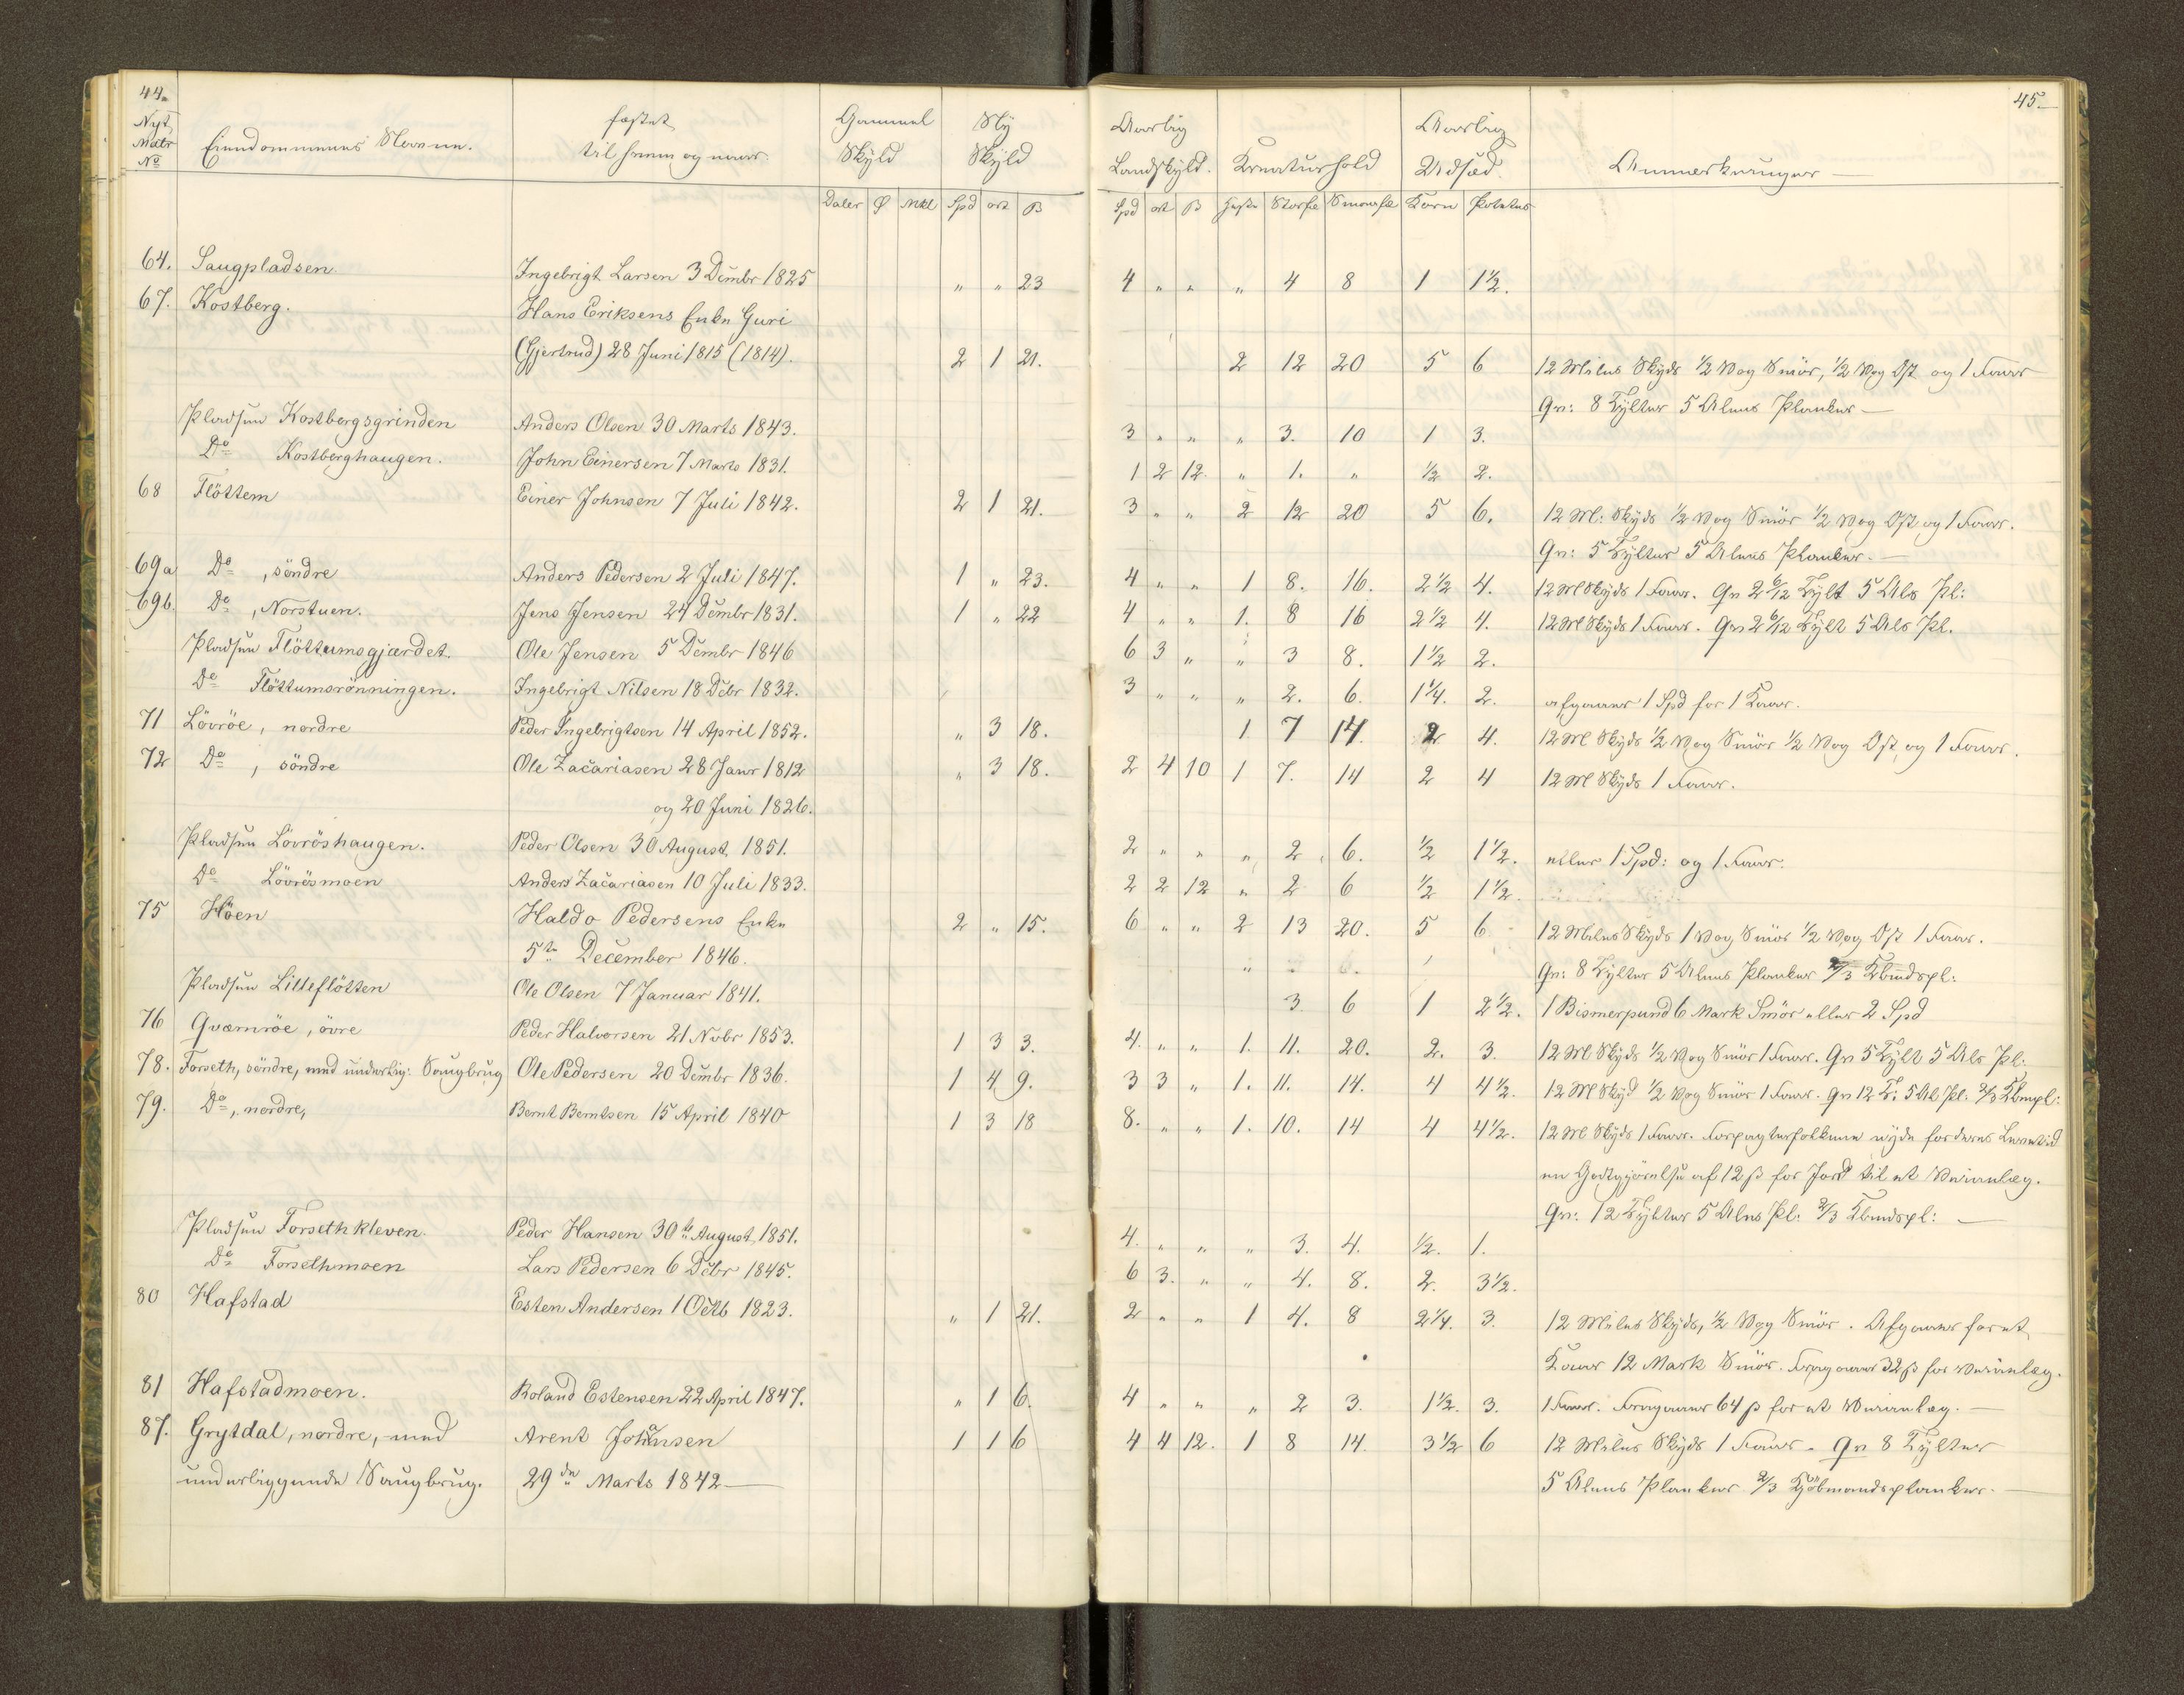 44.
Nyt
Matr
No
Eiendommens Navne.
fæstet
til hvem og naar.
Gammel
Skyld
Ny
Skyld
Daler Mkl Spd ort ß
64. Saugpladsen. Ingebrigt Larsen 3 Dcmbr 1825 " " 23
67. Kostberg. Hans Eriksens Enke Guri
(Gjertrud) 28 Juni 1815 (1814). 2 1 21.
Pladsen Kostbergsgrinden Anders Olsen 30 Marts 1843.
Do Kostberghaugen. John Einersen 7 Marts 1831.
68 Flöttem Einer Johnsen 7 Juli 1842. 2 1 21.
69a Do , söndre Anders Pedersen 2 Juli 1847. 1 " 23.
69b. Do , Norstuen. Jens Jensen 24 Dcmbr 1831. 1 " 22
Pladsen Flöttumsgjærdet. Ole Jensen 5 Dcmbr 1846
Do Flöttumsrönningen. Ingebrigt Nilsen 18 Dcbr 1832.
71 Lövröe, nordre Peder Ingebrigtsen 14 April 1852. " 3 18.
72 Do , söndre Ole Zacariasen 28 Janr 1812 " 3 18.
og 20 Juni 1826.
Pladsen Lövröshaugen. Peder Olsen 30 August 1851.
Do Lövrösmoen Anders Zacariasen 10 Juli 1833.
75 Höen Haldo Pedersens Enke 2 " 15.
5te December 1846.
Pladsen Lilleflötten Ole Olsen 7 Januar 1841.
76 Qvamröe, övre Peder Halvorsen 21 Novbr 1853. 1 3 3.
78. Forseth, söndre, med underlig: Saugbrug Ole Pedersen 20 Dcmbr 1836. 1 4 9.
79. Do, nordre, Bernt Berntsen 15 April 1840 1 3 18
Pladsen Forsethkleven. Peder Hansen 30te August 1851.
Do Forsethmoen Lars Pedersen 6 Dcbr 1845.
80 Hafstad Esten Andersen 1 Octb 1823. " 1 21.
81 Hafstadmoen. Roland Estensen 22 April 1847. " 1 6.
87. Grytdal, nordre, med Arent Johnsen 1 1 6
underliggende Saugbrug. 29de Marts 1842
45.
Aarlig
Landskyld.
Kreaturhold
Aarlig
Udsæd.
Anmærkninger
Spd ort ß Heste Storfæ Smaafæ Korn Poteter
4 " " " 4 8 1 1½.
2 12 20 5 6 12 Miles Skyds ½ Vog Smör, ½ Vog Ost og 1 Faar
Gn: 8 Tylter 5 Alens Planker
3 " " " 3. 10 1 3.
1 2 12. " 1. " ½ 2.
3 " " 2 12 20 5 6. 12 Ml: Skyds ½ Vog Smör ½ Vog Ost og 1 Faar.
Gn: 5 Tylter 5 Alens Planker.
4 " " 1 8. 16. 2½ 4. 12 Ml Skyds 1 Faar. Gn 2 6/12 Tylt 5 Als Pl:
4 " " 1. 8 16 2½ 4. 12 Ml Skyds 1 Faar. Gn 2 6/12 Tylt 5 Als Pl.
6 3 " " 3 8. 1½ 2.
3 " " " 2. 6. 1¼. 2. afgaaer 1 Spd for 1 Kaar.
1 7 14. 2 4. 12 Ml Skyds ½ Vog Smör ½ Vog Ost og 1 Faar.
2 4 10 1 7. 14 2 4 12 Ml Skyds 1 Faar.
2 " " " 2 6. ½ 1½. eller 1 Spd: og 1 Faar.
2 2 12 " 2 6 ½ 1½.
6 " " 2 13 20. 5 6 12 Miles Skyds 1 Vog Smör ½ Vog Ost 1 Faar.
Gn: 8 Tylter 5 Alens Planker 2/3 Kbmdspl:
3 6 1 2½. 1 Bismerpund 6 Mark Smör eller 2 Spd
4. " " 1. 11. 20. 2. 3. 12 Ml Skyds ½ Vog Smör 1 Faar. Gn 5 Tylt 5 Als Pl:
3 3 " 1. 11. 14. 4 4½. 12 Ml Skyd ½ Vog Smör 1 Faar. Gn 12 T: 5 Al Pl. 2/3 Kbmpl:
8. " " 1. 10. 14 4 4½. 12 Ml Skyds 1 Faar. Forpagterfolkene nyde for deres Levetid
en Godtgjörelse af 12 ß for Jord til et Veianlæg.
Gn: 12 Tylter 5 Alns Pl: 2/3 Kbmdspl:
4. " " " 3. 4. ½. 1.
6 3. " " 4. 8. 2. 3½.
2 " " 1 4. 8 2¼. 3. 12 Miles Skyds, ½ Vog Smör. Afgaaer for et
Kaar 12 Mark Smör. Fragaaer 32 ß for Veianlæg.
4 " " " 2 3. 1½. 3. 1 Faar. Fragaaer 64 ß for et Veianlæg.
4 4 12. 1 8 14. 3½ 6 12 Miles Skyds 1 Faar. Gn 8 Tylter
5 Alens Planker 2/3 Kjöbmandsplanker.